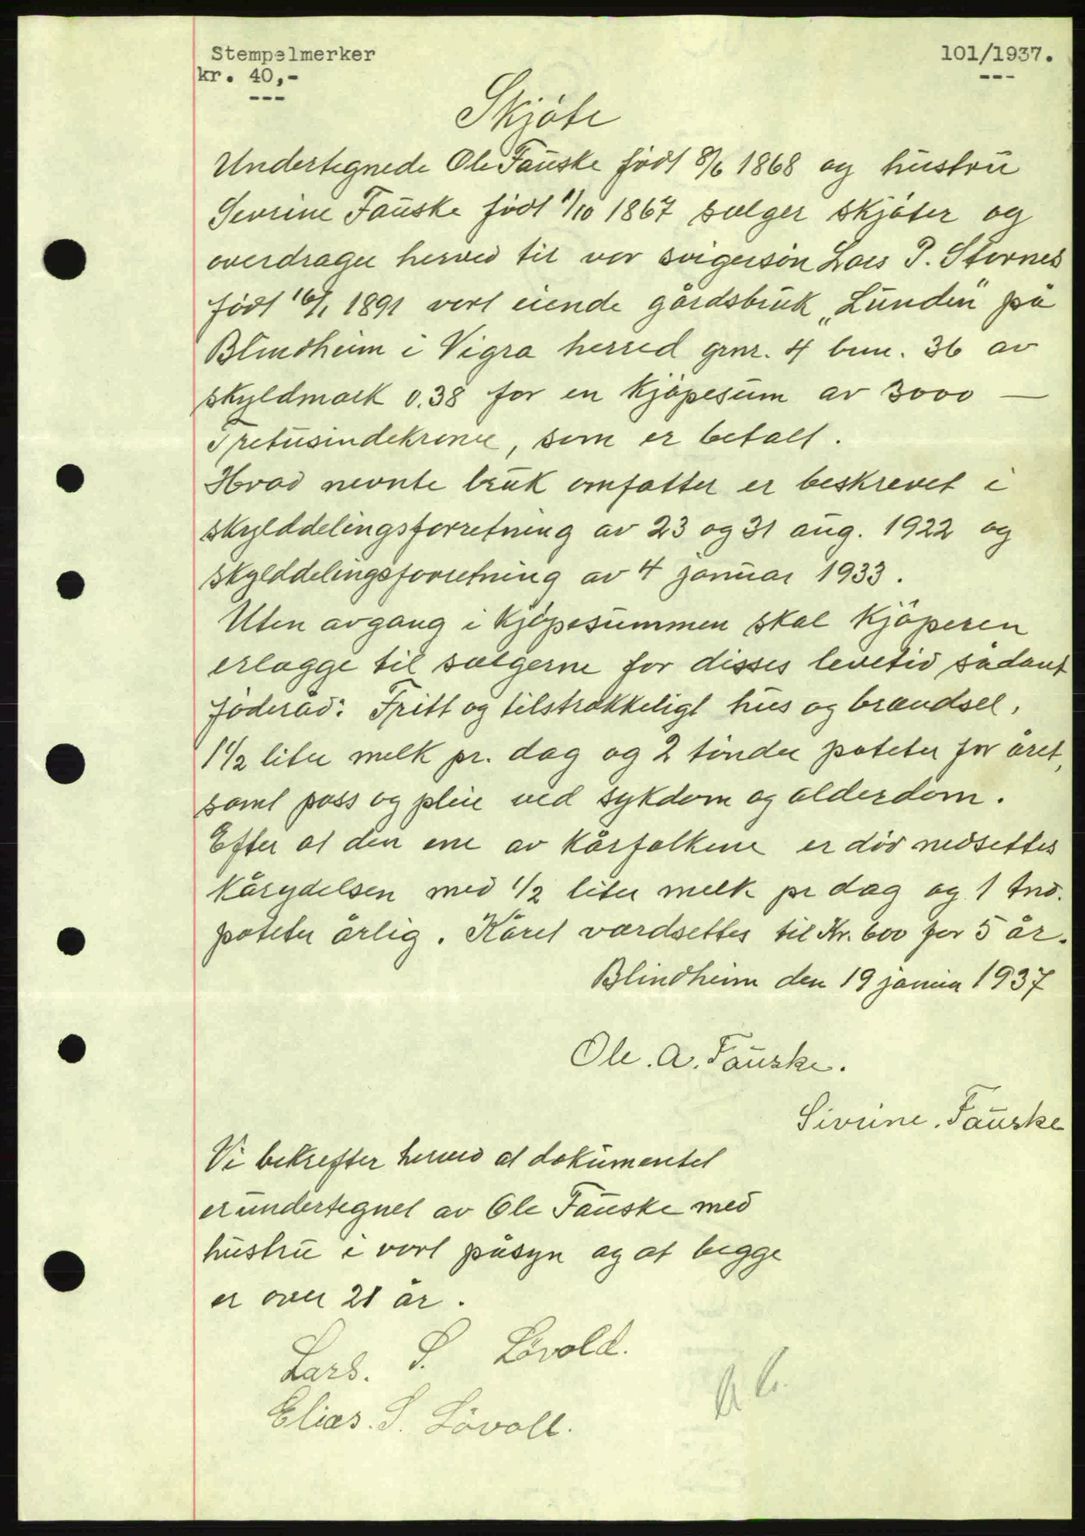 Stempelmerker
101/1937.
kr. 40,-
---
---
Skjöte
Undertegnede Ole Fauske född 8/6 1868 og hustru
Sevrine Fauske född 1/10 1867 sælger skjöter og
overdrager herved til vor svigersön Lars P. Stornes
född 16/1 1891 vort eiende gårdsbruk „Lunden" på
Blindheim i Vigra herred grnr. 4 brnr. 36 av
skyldmark 0.38 for en kjöpesum av 3000 —
Tretusindekroner, som er betalt.
Hvad nevnte bruk omfatter er beskrevet i
skylddelingsforretning av 23 og 31 aug. 1922 og
skylddelingsforretning av 4 januar 1933.
Uten avgang i kjöpesummen skal kjöperen
erlægge til sælgerne for disses levetid sådant
föderåd: Fritt og tilstrækkeligt hus og brændsel,
1 1/2 liter melk pr. dag og 2 tönder poteter for året,
samt pass og pleie ved sykdom og alderdom.
Efter at den ene av kårfolkene er död nedsettes
kårydelsen med 1/2 liter melk pr dag og 1 tnd.
poteter årlig. Kåret værdsettes til Kr. 600 for 5 år.
Blindheim den 19 januar 1937
Ole. A. Fauske.
Sivrine. Fauske
Vi bekrefter herved at dokumentet
er undertegnet av Ole Fauske med
hustru i vort påsyn og at begge
er over 21 år.
Lars. S. Lövold.
Elias. S. Lövoll.